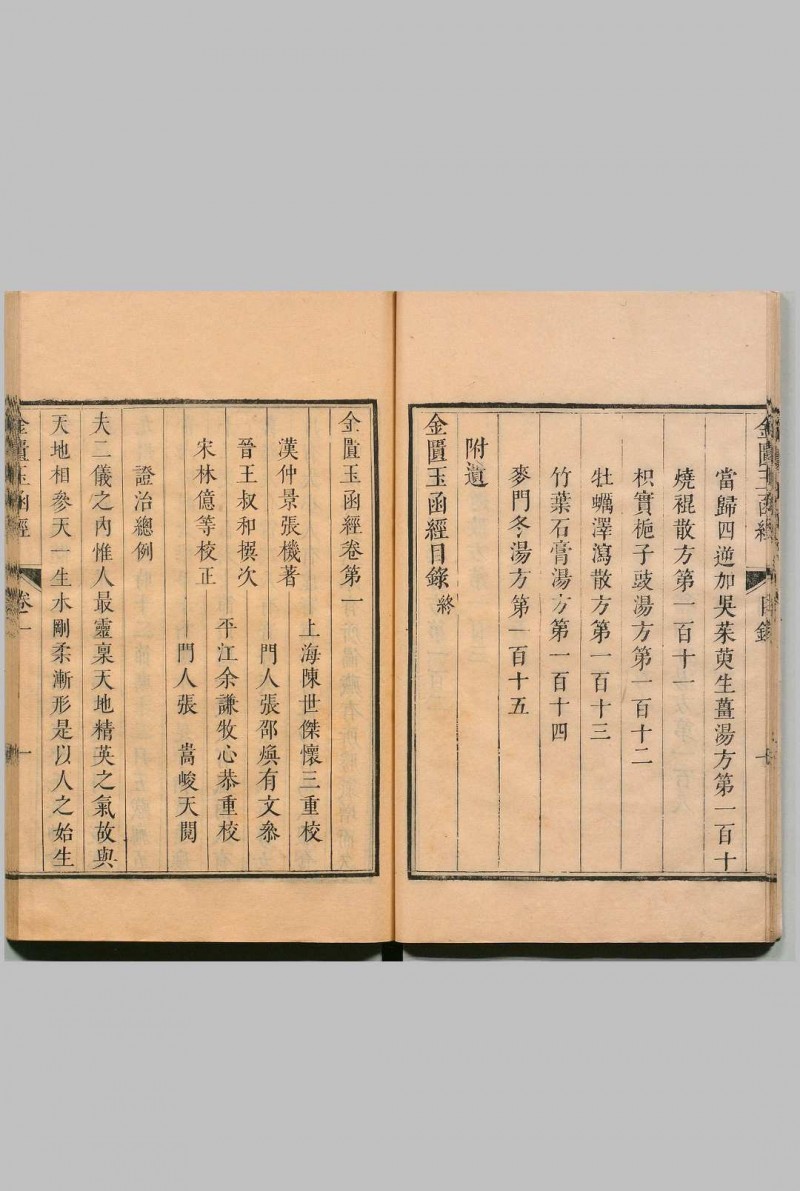 金匱玉函經
目錄
當歸四逆加吳茱萸生薑湯方第一百十
燒裩散方第一百十一
枳實梔子豉湯方第一百十二
牡蠣澤瀉散方第一百十三
竹葉石膏湯方第一百十四
麥門冬湯方第一百十五
附遺
金匱玉函經目錄終
金匱玉函經卷第一
漢仲景張機著 上海陳世傑懷三重校
晉王叔和撰次 門人張邵煥有文叅
宋林億等校正 平江余謙牧心恭重校
門人張嵩峻天閱
證治總例
夫二儀之內惟人最靈稟天地精英之氣故與
天地相參天一生水剛柔漸形是以人之始生
金匱玉函經
卷一
一